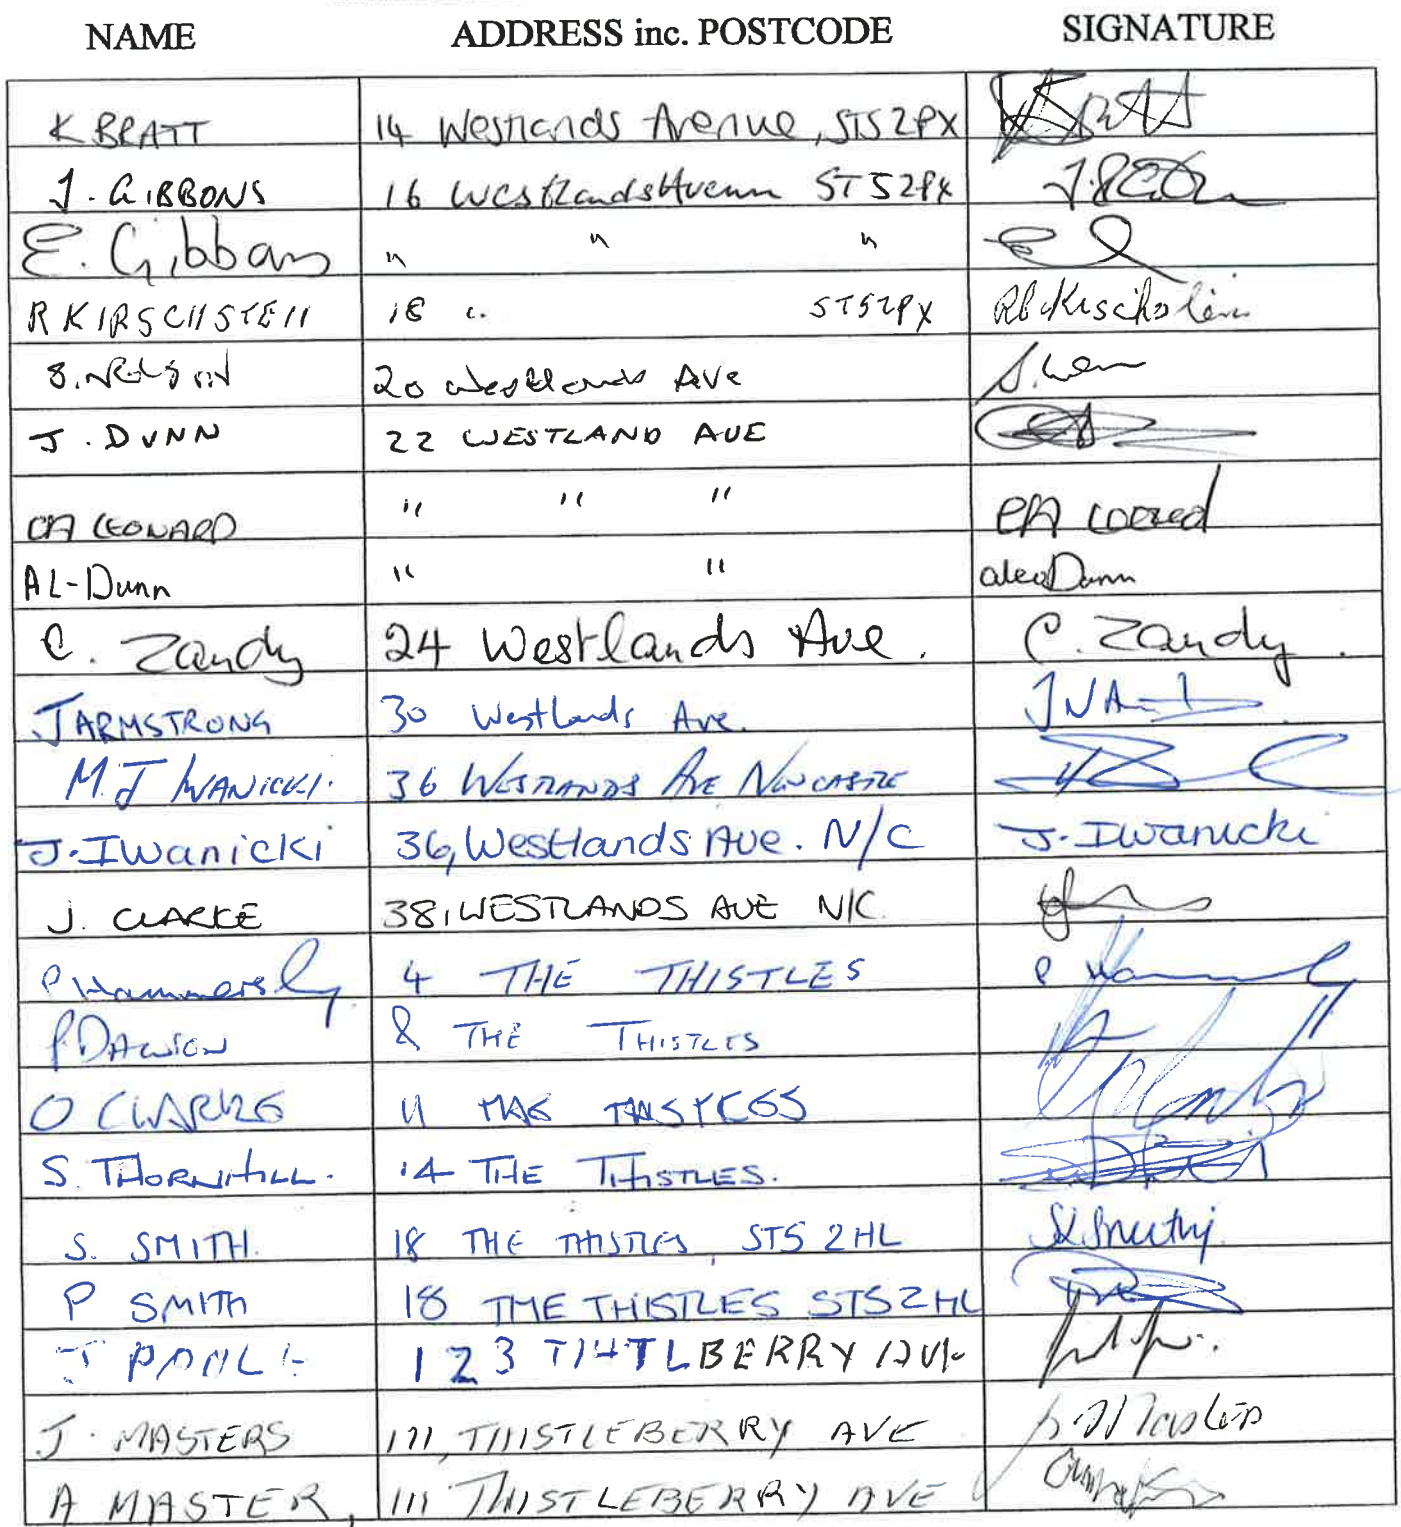 NAME ADDRESS inc. POSTCODE SIGNATURE
K BRATT 14 Westlands Avenue, ST5 2PX
J. GIBBONS 16 Westlands Avenue ST5 2PX
E. Gibbons " " "
R KIRSCHSTEIN 18 " ST52PX
S. NELSON 20 Westlands Ave
J. DUNN 22 WESTLAND AVE
CA LEONARD " " "
AL-Dunn " " alex Dunn
C. Zandy 24 Westlands Ave. C. Zandy.
J ARMSTRONG 30 Westlands Ave.
M.J IWANICKI. 36 WESTLANDS AVE NEWCASTLE
J. IWanicki 36, Westlands Ave. N/C J. Iwanicki
J. CLARKE 38, WESTLANDS AVE N/C.
P Hammersly 4 THE THISTLES
P DAWSON 8 THE THISTLES
O CLARKE 11 THE THISTLES
S. THORNHILL. 14 THE THISTLES.
S. SMITH. 18 THE THISTLES, ST5 2HL
P SMITH 18 THE THISTLES ST5 2HL
J 123 BERRY AVE
J. MASTERS 111, THISTLEBERRY AVE
A MASTER, 111 THISTLEBERRY AVE